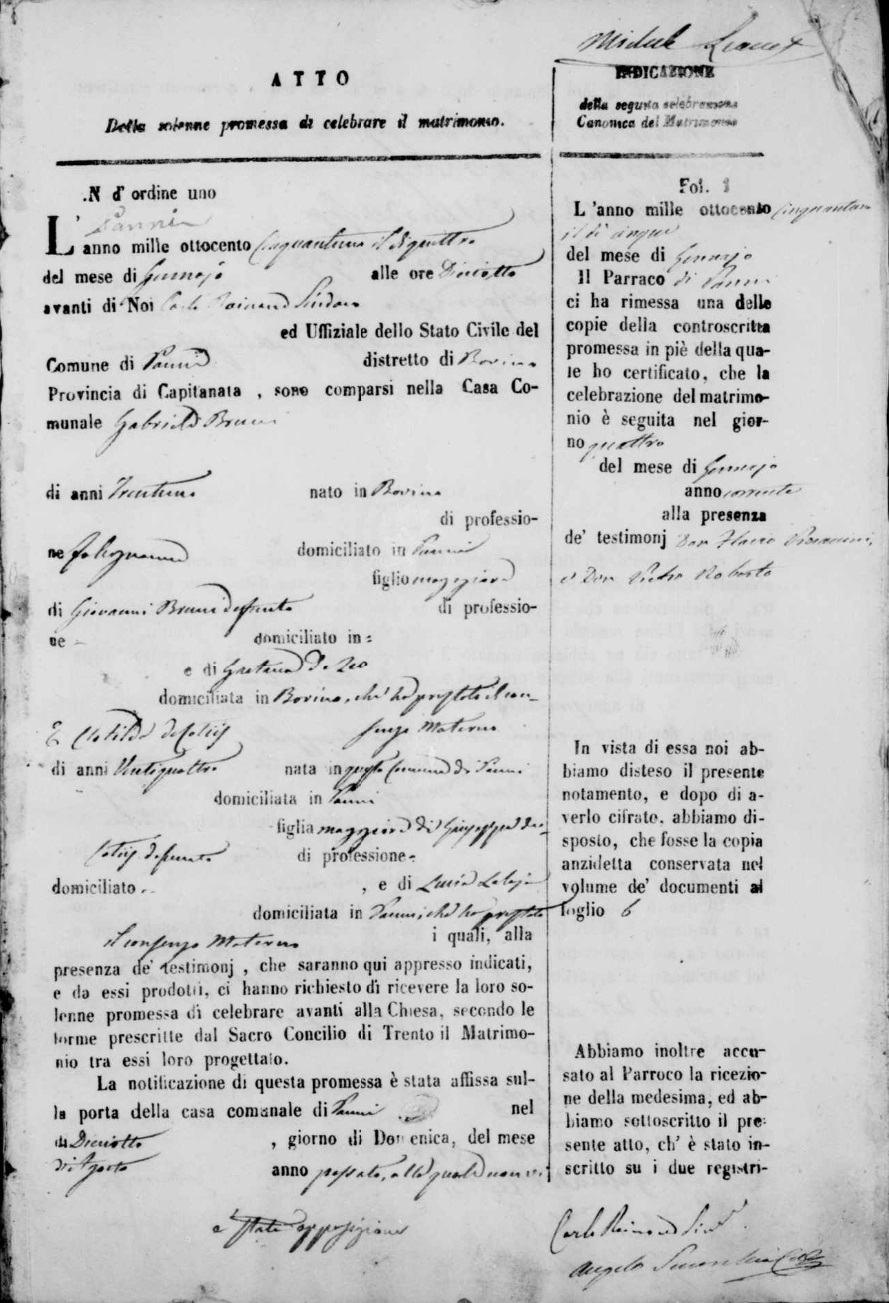 ATTO
Della solenne promessa di celebrare il matrimonio.
.N d'ordine uno
Panni
L'anno mille ottocento cinquantuno il dì quattro
del mese di Gennajo alle ore Diciotto
avanti di Noi Carlo Rainone Sindaco
ed Uffiziale dello Stato Civile del
Comune di Panni distretto di Bovino
Provincia di Capitanata , sono comparsi nella Casa Co-
munale Gabriele Bruni
di anni Trentuno nato in Bovino
di professio-
ne falegname domiciliato in Panni
figlio maggiore
di Giovanni Bruni defunto di professio-
ne - domiciliato in =
e di Gaetana
domiciliata in Bovino, che ha prestato il con-
senso Materno
E Clotilde de
di anni Ventiquattro nata in questo Comune di Panni
domiciliata in Panni
figlia maggiore di Giuseppe de-
defunto di professione -
domiciliato - , e di Lucia
domiciliata in Panni che ha prestato
il consenso Materno i quali, alla
presenza de' testimonj , che saranno qui appresso indicati,
e da essi prodotti, ci hanno richiesto di ricevere la loro so-
lenne promessa di celebrare avanti alla Chiesa, secondo le
forme prescritte dal Sacro Concilio di Trento il Matrimo-
nio tra essi loro progettato.
La notificazione di questa promessa è stata affissa sul-
la porta della casa comunale di Panni nel
dì Diciotto , giorno di Domenica, del mese
di Agosto anno passato, alla quale non vi
è stata opposizione
INDICAZIONE
della seguita celebrazione
Canonica del Matrimonio
Fol. 1
L'anno mille ottocento cinquantuno
il dì cinque
del mese di Gennajo
Il Parraco di Panni
ci ha rimessa una delle
copie della controscritta
promessa in piè della qua-
le ho certificato, che la
celebrazione del matrimo-
nio è seguita nel gior-
no quattro
del mese di Gennajo
anno corrente
alla presenza
de' testimonj Don Flavio
e Don Pietro Roberto
In vista di essa noi ab-
biamo disteso il presente
notamento, e dopo di a-
verlo cifrato. abbiamo di-
sposto, che fosse la copia
anzidetta conservata nel
volume de' documenti al
foglio 6
Abbiamo inoltre accu-
sato al Parroco la ricezio-
ne della medesima, ed ab-
biamo sottoscritto il pre-
sente atto, ch' è stato in-
scritto su i due registri-
Carlo Rainone
Angelo